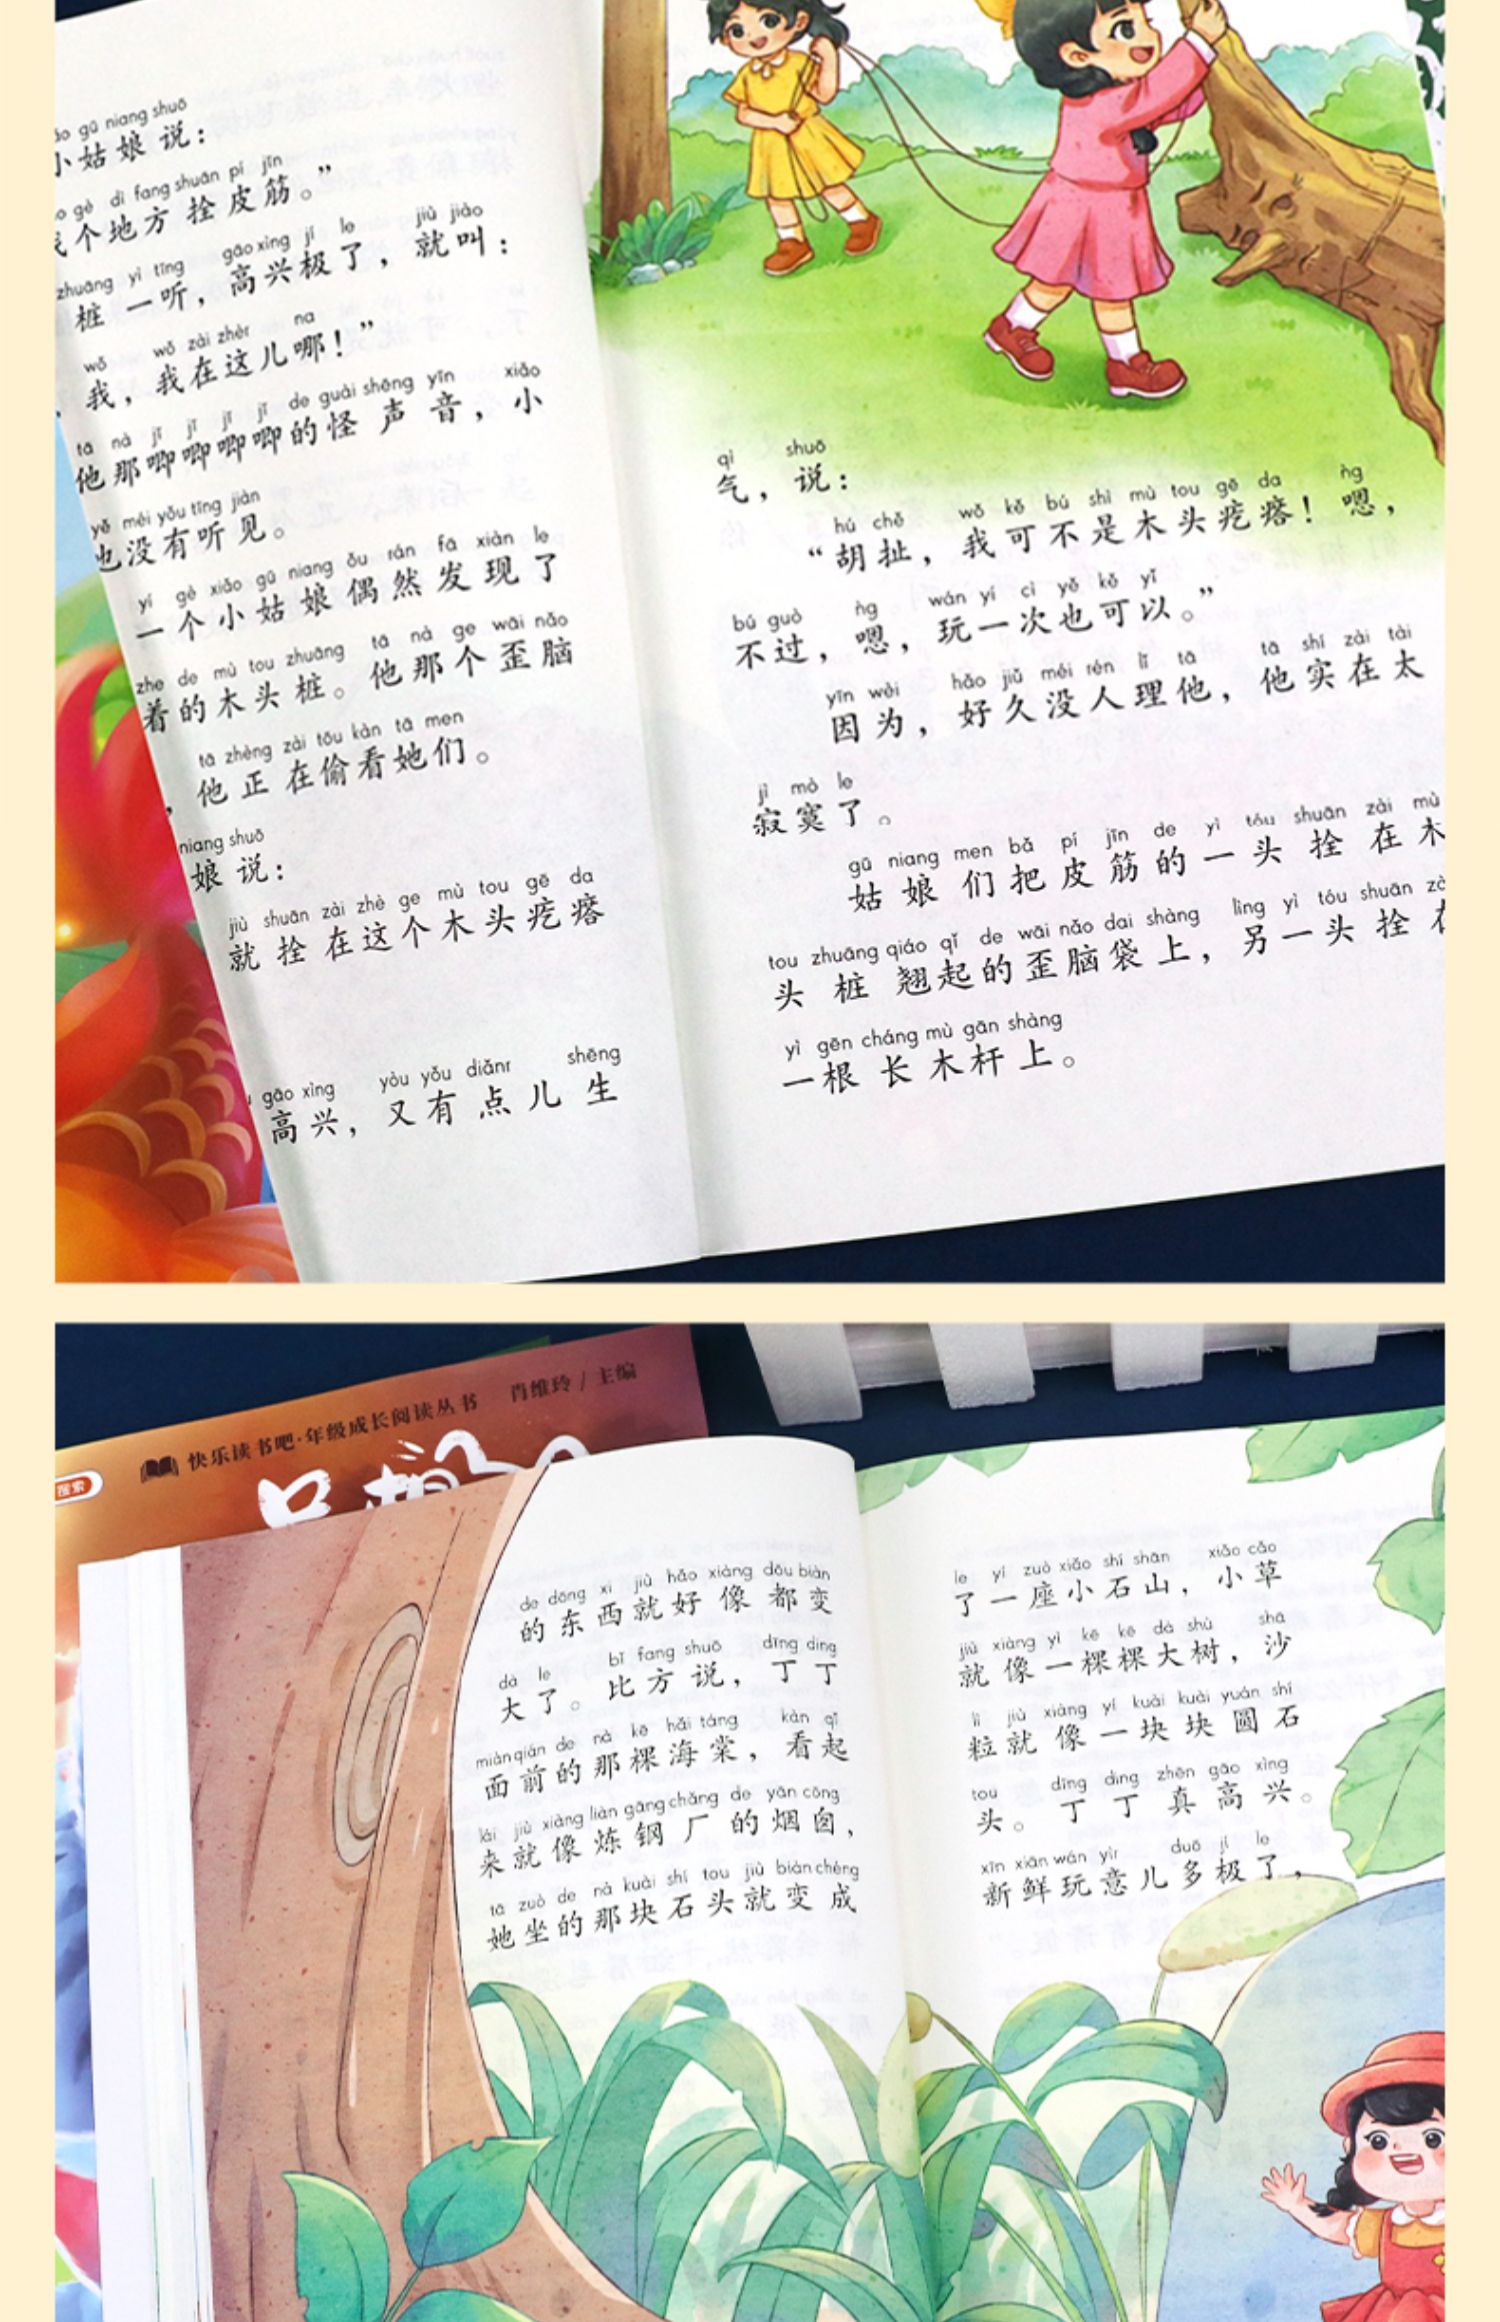 ǎo gū niang shuō
小姑娘说：
o gè dì fang shuān pí jīn
个地方拴皮筋。”
zhuāng yì tīng gāo xìng jí le jiù jiào
桩一听，高兴极了，就叫：
wǒ wǒ zài zhèr na
我，我在这儿哪！”
tā nà jī jī jī jī de guài shēng yīn xiǎo
他那唧唧唧唧的怪声音，小
yě méi yǒu tīng jiàn
也没有听见。
yí gè xiǎo gū niang ǒu rán fā xiàn le
一个小姑娘偶然发现了
zhe de mù tou zhuāng tā nà ge wāi nǎo
着的木头桩。他那个歪脑
tā zhèng zài tōu kàn tā men
，他正在偷看她们。
niang shuō
娘说：
jiù shuān zài zhè ge mù tou gē da
就拴在这个木头疙瘩
gāo xìng yòu yǒu diǎnr shēng
高兴，又有点儿生
qì shuō
气，说：
hú chě wǒ kě bú shì mù tou gē da ǹg
“胡扯，我可不是木头疙瘩！嗯，
bú guò ǹg wán yí cì yě kě yǐ
不过，嗯，玩一次也可以。”
yīn wèi hǎo jiǔ méi rén lǐ tā tā shí zài tài
因为，好久没人理他，他实在太
jì mò le
寂寞了。
gū niang men bǎ pí jīn de yì tóu shuān zài mù
姑娘们把皮筋的一头拴在木
tou zhuāng qiáo qǐ de wāi nǎo dai shàng lìng yì tóu shuān zà
头桩翘起的歪脑袋上，另一头拴在
yì gēn cháng mù gān shàng
一根长木杆上。
快乐读书吧·年级成长阅读丛书 肖维玲/主编
搜索
只想
de dōng xi jiù hǎo xiàng dōu biàn
的东西就好像都变
dà le bǐ fang shuō dīng ding
大了。比方说，丁丁
miàn qián de nà kē hǎi táng kàn qǐ
面前的那棵海棠，看起
lái jiù xiàng liàn gāng chǎng de yān cōng
来就像炼钢厂的烟囱，
tā zuò de nà kuài shí tou jiù biàn chéng
她坐的那块石头就变成
le yí zuò xiǎo shí shān xiǎo cǎo
了一座小石山，小草
jiù xiàng yì kē kē dà shù shā
就像一棵棵大树，沙
lì jiù xiàng yí kuài kuài yuán shí
粒就像一块块圆石
tou dīng ding zhēn gāo xìng
头。丁丁真高兴。
xīn xiān wán yìr duō jí le
新鲜玩意儿多极了，